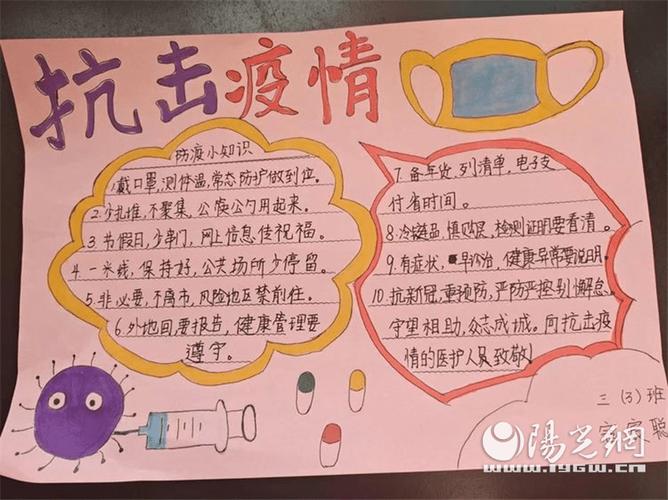 抗击疫情
防疫小知识
1.戴口罩,测体温,常态防护做到位。
2.少扎堆,不聚集,公筷公勺用起来。
3.节假日,少串门,网上信息传祝福。
4.一米线,保持好,公共场所少停留。
5.非必要,不离市,风险地区禁前往。
6.外地回,要报告,健康管理要
遵守。
7.备年货,列清单,电子支
付省时间。
8.冷链品,慎购买,检测证明要看清。
9.有症状,早诊治,健康异常要说明。
10.抗新冠,重预防,严防严控别懈怠。
守望相助,众志成城。向抗击疫
情的医护人员致敬!
三(3)班
聪
陽光網
www.iygw.cn